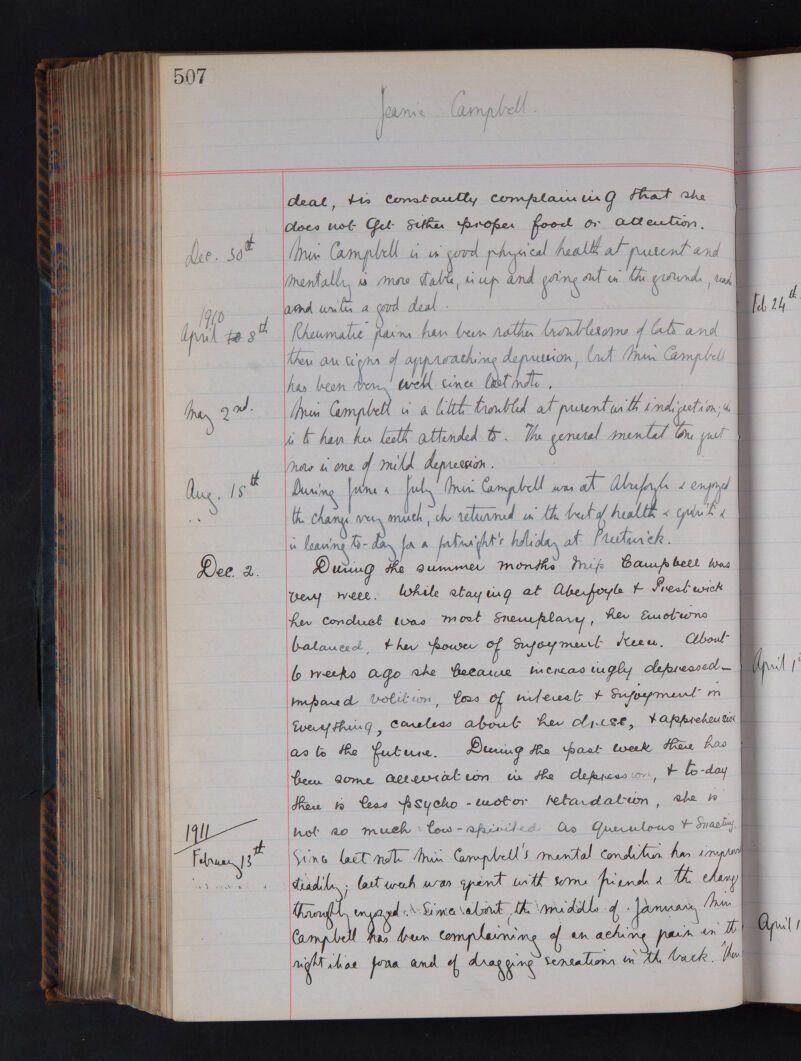 507
Jeanie Campbell.
deal, & is constantly complaining that she
does not get either proper food or attention.
Dec. 30th
Miss Campbell is in good physical health at present and
mentally is more stable, is up and going out in the grounds, reads
and writes a good deal.
1910
April 8th
Rheumatic pains have been rather troublesome of late and
there are signs of approaching depression, but Miss Campbell
has been very well since last note.
May 2nd.
Miss Campbell is a little troubled at present with indigestion; she
is to have her teeth attended to. The general mental tone just
now is one of mild depression.
Aug. 15th
During June & July Miss Campbell was at Aberfoyle & enjoyed
the change very much, she returned in the best of health & spirits &
is leaving to-day for a fortnight's holiday at Prestwick.
Dec. 2.
During the summer months Miss Campbell was
very well. While staying at Aberfoyle & Prestwick
her conduct was most exemplary, her emotions
balanced, & her power of enjoyment keen. About
6 weeks ago she became increasingly depressed –
impaired volition, loss of interest & enjoyment in
everything, careless about her dress, & apprehensive
as to the future. During the past week there has
been some alleviation in the depression, & to-day
there is less psycho-motor retardation, she is
not so much low-spirited as querulous & exacting.
1911
February 13th
Since last note Miss Campbell's mental condition has improved
steadily; last week was spent with some friends & the change
thoroughly enjoyed. Since about the middle of January Miss
Campbell has been complaining of an aching pain in the
right iliac fossa and of dragging sensations in the back. There
Feb 24th
April 1
April 1